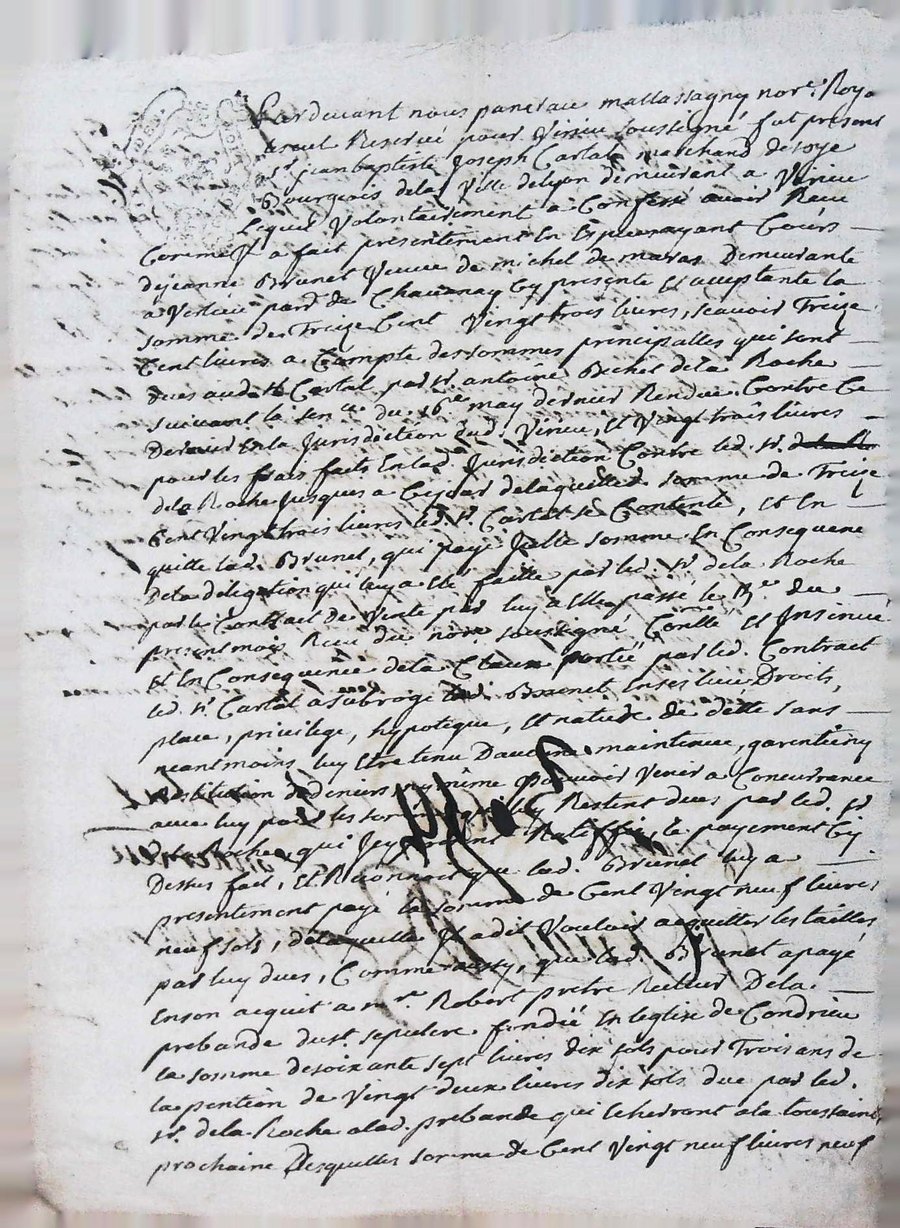 Pardevant nous pancrace mallassagny nore. Royal
Reservé pour Virieu soussigné fut present
sr. jean baptiste Joseph Carlat marchand de soye
Bourgeois de la Ville de lyon demeurant a Virieu
Lequel Volontairement a Confessé avoir Receu
Comme Il a fait presentement En Especes ayant Cours
de jeanne Brunet Veuve de michel de maras Demeurante
a Verlieu parr. de Chavanay Cy presente Et acceptante la
somme de Treize Cent Vingt trois livres, scavoir Treize
Cent livres a Compte des sommes principalles qui sont
dues aud. sr. Carlat par sr. antoine Bechet de la Roche
suivant la sence. du 16e. may dernier Rendue Contre Ce
Dernier En la Jurisdiction dud. Virieu, Et Vingt trois livres
pour les frais faits En lad. Jurisdiction Contre led. sr.
de la Roche Jusques a Cejour de laquelle somme de Treize
Cent Vingt trois livres led. sr. Carlat se Contente, Et En
quitte lad. Brunet, qui paye Jcelle somme En Consequence
De la délégation qui luy a Eté faitte par led. sr. de la Roche
par le Contrat De Vente par luy a Elle passé le du
present mois Receu du nore soussigné Conllé Et Jnsinué
Et En Consequence de la Clause portée par led. Contract
led. sr. Carlat a subrogé lad. Brunet En ses lieu Droits,
place, privilege, hypoteque, Et nature de dette sans
neantmoins luy Etre tenu D'aucune maintenue, garentie ny
restitution de deniers ny même pouvoir Venir a Concurrance
avec luy pour les Restent dues par led. sr.
de la Roche, qui le payement Cy
Dessus fait, Et Reconnoit que lad. Brunet luy a
presentement payé la somme de Cent Vingt neuf livres
neuf sols, de laquelle Il a dit Vouloir acquitter les tailles
par luy dues, Comme aussy, que lad. Brunet a payé
En son acquit a mre. Robert pretre Recteur De la
prebande du st. sepulcre fondée En leglise de Condrieu
la somme de soixante sept livres dix sols pour Trois ans de
la pention de Vingt deux livres dix sols due par led.
sr. de la Roche a lad. prebande qui Echerront a la toussaint
prochaine Desquelles somme de Cent Vingt neuf livres neuf